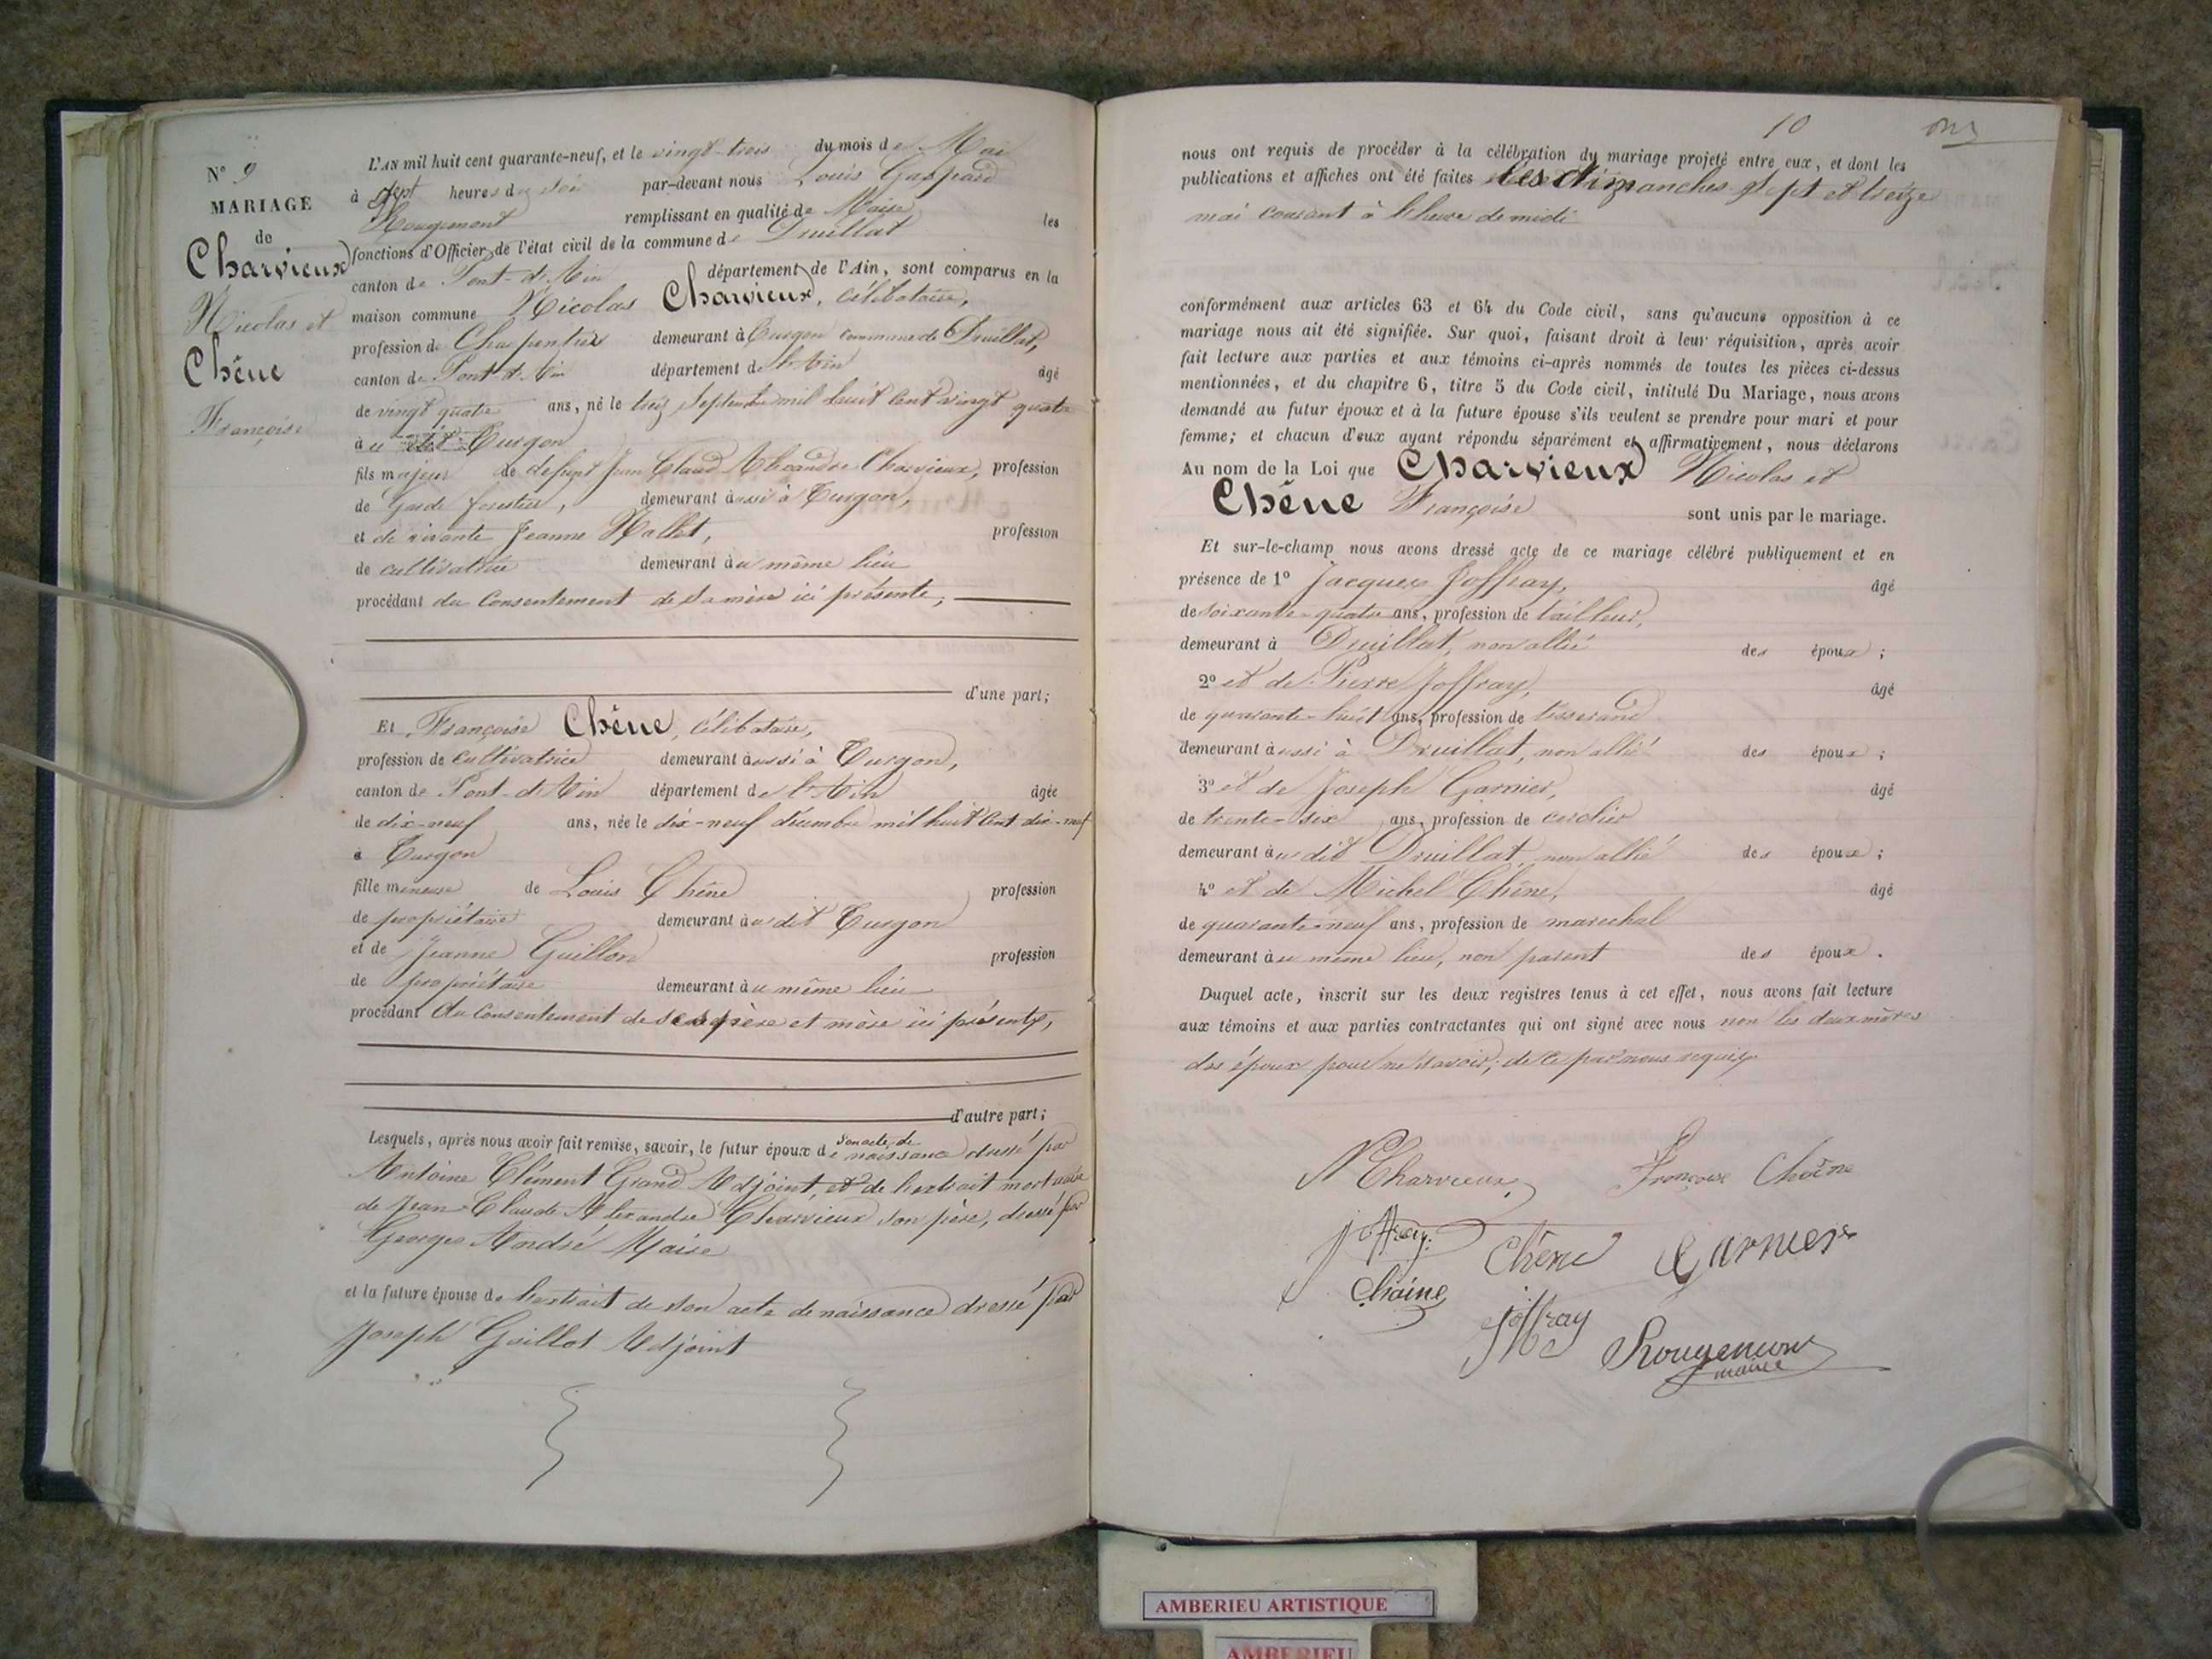 N° 9
MARIAGE
de
Charvieux
Nicolas et
Chêne
Françoise
L'AN mil huit cent quarante-neuf, et le vingt-trois du mois de Mai
à sept heures du soir par-devant nous Louis Gaspard
Rougemont remplissant en qualité de Maire les
fonctions d'Officier de l'état civil de la commune de Druillat
canton de Pont-d'Ain département de l'Ain, sont comparus en la
maison commune Nicolas Charvieux, célibataire,
profession de Charpentier demeurant à Turgon commune de Druillat,
canton de Pont-d'Ain département de l'Ain âgé
de vingt quatre ans, né le treize Septembre mil huit cent vingt quatre
au dit Turgon
fils majeur de defunt Jean Claud Alexandre Charvieux, profession
de Garde forestier, demeurant aussi à Turgon,
et de vivante Jeanne Mallet, profession
de cultivatrice demeurant au même lieu
procédant du Consentement de Sa mère ici présente,
d'une part;
Et Françoise Chêne, célibataire,
profession de Cultivatrice demeurant aussi à Turgon,
canton de Pont-d'Ain département de l'Ain âgée
de dix-neuf ans, née le dix-neuf décembre mil huit Cent dix-neuf
à Turgon
fille mineure de Louis Chêne profession
de propriétaire demeurant au dit Turgon
et de Jeanne Guillon profession
de propriétaire demeurant au même lieu
procédant du Consentement de ses père et mère ici présents,
d'autre part;
Lesquels, après nous avoir fait remise, savoir, le futur époux de son acte de naissance dressé par
Antoine Clément Grand Adjoint, et de l'extrait mortuaire
de Jean-Claude Alexandre Charvieux son père, dressé par
Georges André Maire
et la future épouse de l'extrait de son acte de naissance dressé par
Joseph Guillot Adjoint
10
nous ont requis de procéder à la célébration du mariage projeté entre eux, et dont les
publications et affiches ont été faites les dimanches sept et treize
mai courant à l'heure de midi
conformément aux articles 63 et 64 du Code civil, sans qu'aucune opposition à ce
mariage nous ait été signifiée. Sur quoi, faisant droit à leur réquisition, après avoir
fait lecture aux parties et aux témoins ci-après nommés de toutes les pièces ci-dessus
mentionnées, et du chapitre 6, titre 5 du Code civil, intitulé Du Mariage, nous avons
demandé au futur époux et à la future épouse s'ils veulent se prendre pour mari et pour
femme; et chacun d'eux ayant répondu séparément et affirmativement, nous déclarons
Au nom de la Loi que Charvieux Nicolas et
Chêne Françoise sont unis par le mariage.
Et sur-le-champ nous avons dressé acte de ce mariage célébré publiquement et en
présence de 1° Jacques Joffray, âgé
de soixante-quatre ans, profession de tailleur,
demeurant à Druillat, non allié des époux;
2° et de Pierre Joffray, âgé
de quarante-huit ans, profession de tisserand
demeurant aussi à Druillat, non allié des époux;
3° et de Joseph Garnier, âgé
de trente-six ans, profession de cerclier
demeurant au dit Druillat, non allié des époux;
4° et de Michel Chêne, âgé
de quarante-neuf ans, profession de marechal
demeurant au même lieu, non parent des époux.
Duquel acte, inscrit sur les deux registres tenus à cet effet, nous avons fait lecture
aux témoins et aux parties contractantes qui ont signé avec nous non les deux mères
des époux pour ne savoir, de ce par nous requises
N Charvieux Françoise Chaîne
Joffray Chêne Garnier
Chaine
Joffray
Rougemont
maire
AMBERIEU ARTISTIQUE
AMBERIEU